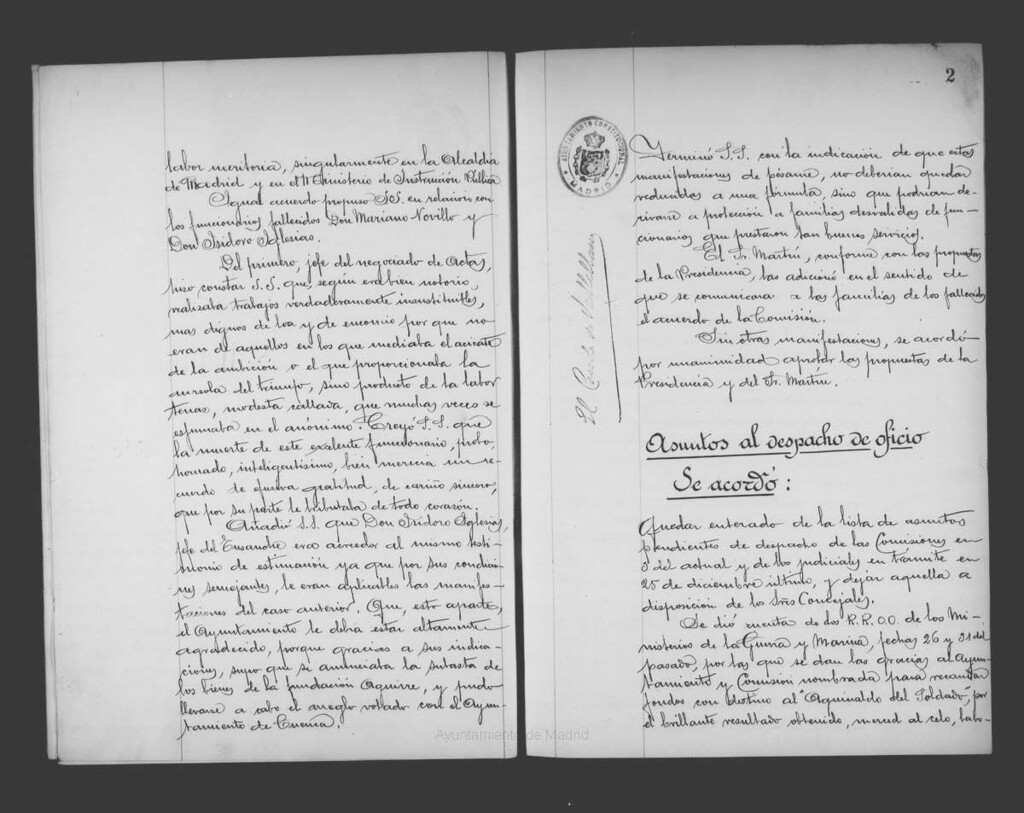 labor meritoria, singularmente en la Alcaldía
de Madrid y en el Ministerio de Instrucción Pública
Igual acuerdo propuso S.S. en relación con
los funcionarios fallecidos Don Mariano Novillo y
Don Isidoro Iglesias.
Del primero, jefe del negociado de Actas,
hizo constar S.S. que, según era bien notorio,
realizaba trabajos verdaderamente insustituibles,
mas dignos de loa y de encomio por que no
eran de aquellos en los que mediaba el acicate
de la ambición o el que proporcionaba la
aureola del triunfo, sino producto de la labor
tenaz, modesta callada, que muchas veces se
esfumaba en el anónimo. Creyó S.S. que
la muerte de este excelente funcionario, probo,
honrado, inteligentísimo, bien merecía un re-
cuerdo de efusiva gratitud, de cariño sincero,
que por su parte le tributaba de todo corazón.
Añadió S.S. que Don Isidoro Iglesias,
jefe del Ensanche era acreedor al mismo testi-
monio de estimación ya que por sus condicio-
nes semejantes, le eran aplicables las manifes-
taciones del caso anterior. Que, esto aparte,
el Ayuntamiento le debía estar altamente
agradecido, porque gracias a sus indica-
ciones, supo que se anunciaba la subasta de
los bienes de la fundación Aguirre, y pudo
llevarse a cabo el arreglo votado con el Ayun-
tamiento de Cuenca.
2
AYUNTAMIENTO CONSTITUCIONAL
MADRID
El Conde de Vallellano
Terminó S.S. con la indicación de que estas
manifestaciones de pésame, no deberían quedar
reducidas a una fórmula, sino que podrían de-
rivarse a protección a familias desvalidas de fun-
cionarios que prestaron tan buenos servicios.
El Sr. Martín, conforme con las propuestas
de la Presidencia, las adicionó en el sentido de
que se comunicara a las familias de los fallecidos
el acuerdo de la Comisión.
Sin otras manifestaciones, se acordó
por unanimidad aprobar las propuestas de la
Presidencia y del Sr. Martín.
Asuntos al despacho de oficio
Se acordó:
Quedar enterado de la lista de asuntos
pendientes de despacho de las Comisiones en
5 del actual y de los judiciales en trámite en
25 de diciembre último, y dejar aquella a
disposición de los Sres Concejales.
Se dió cuenta de dos R.R.O.O. de los Mi-
nisterios de la Guerra y Marina, fechas 26 y 31 del
pasado, por las que se dan las gracias al Ayun-
tamiento y Comisión nombrada para recaudar
fondos con destino al "Aguinaldo del Soldado", por
el brillante resultado obtenido, merced al celo, labo-
Ayuntamiento de Madrid